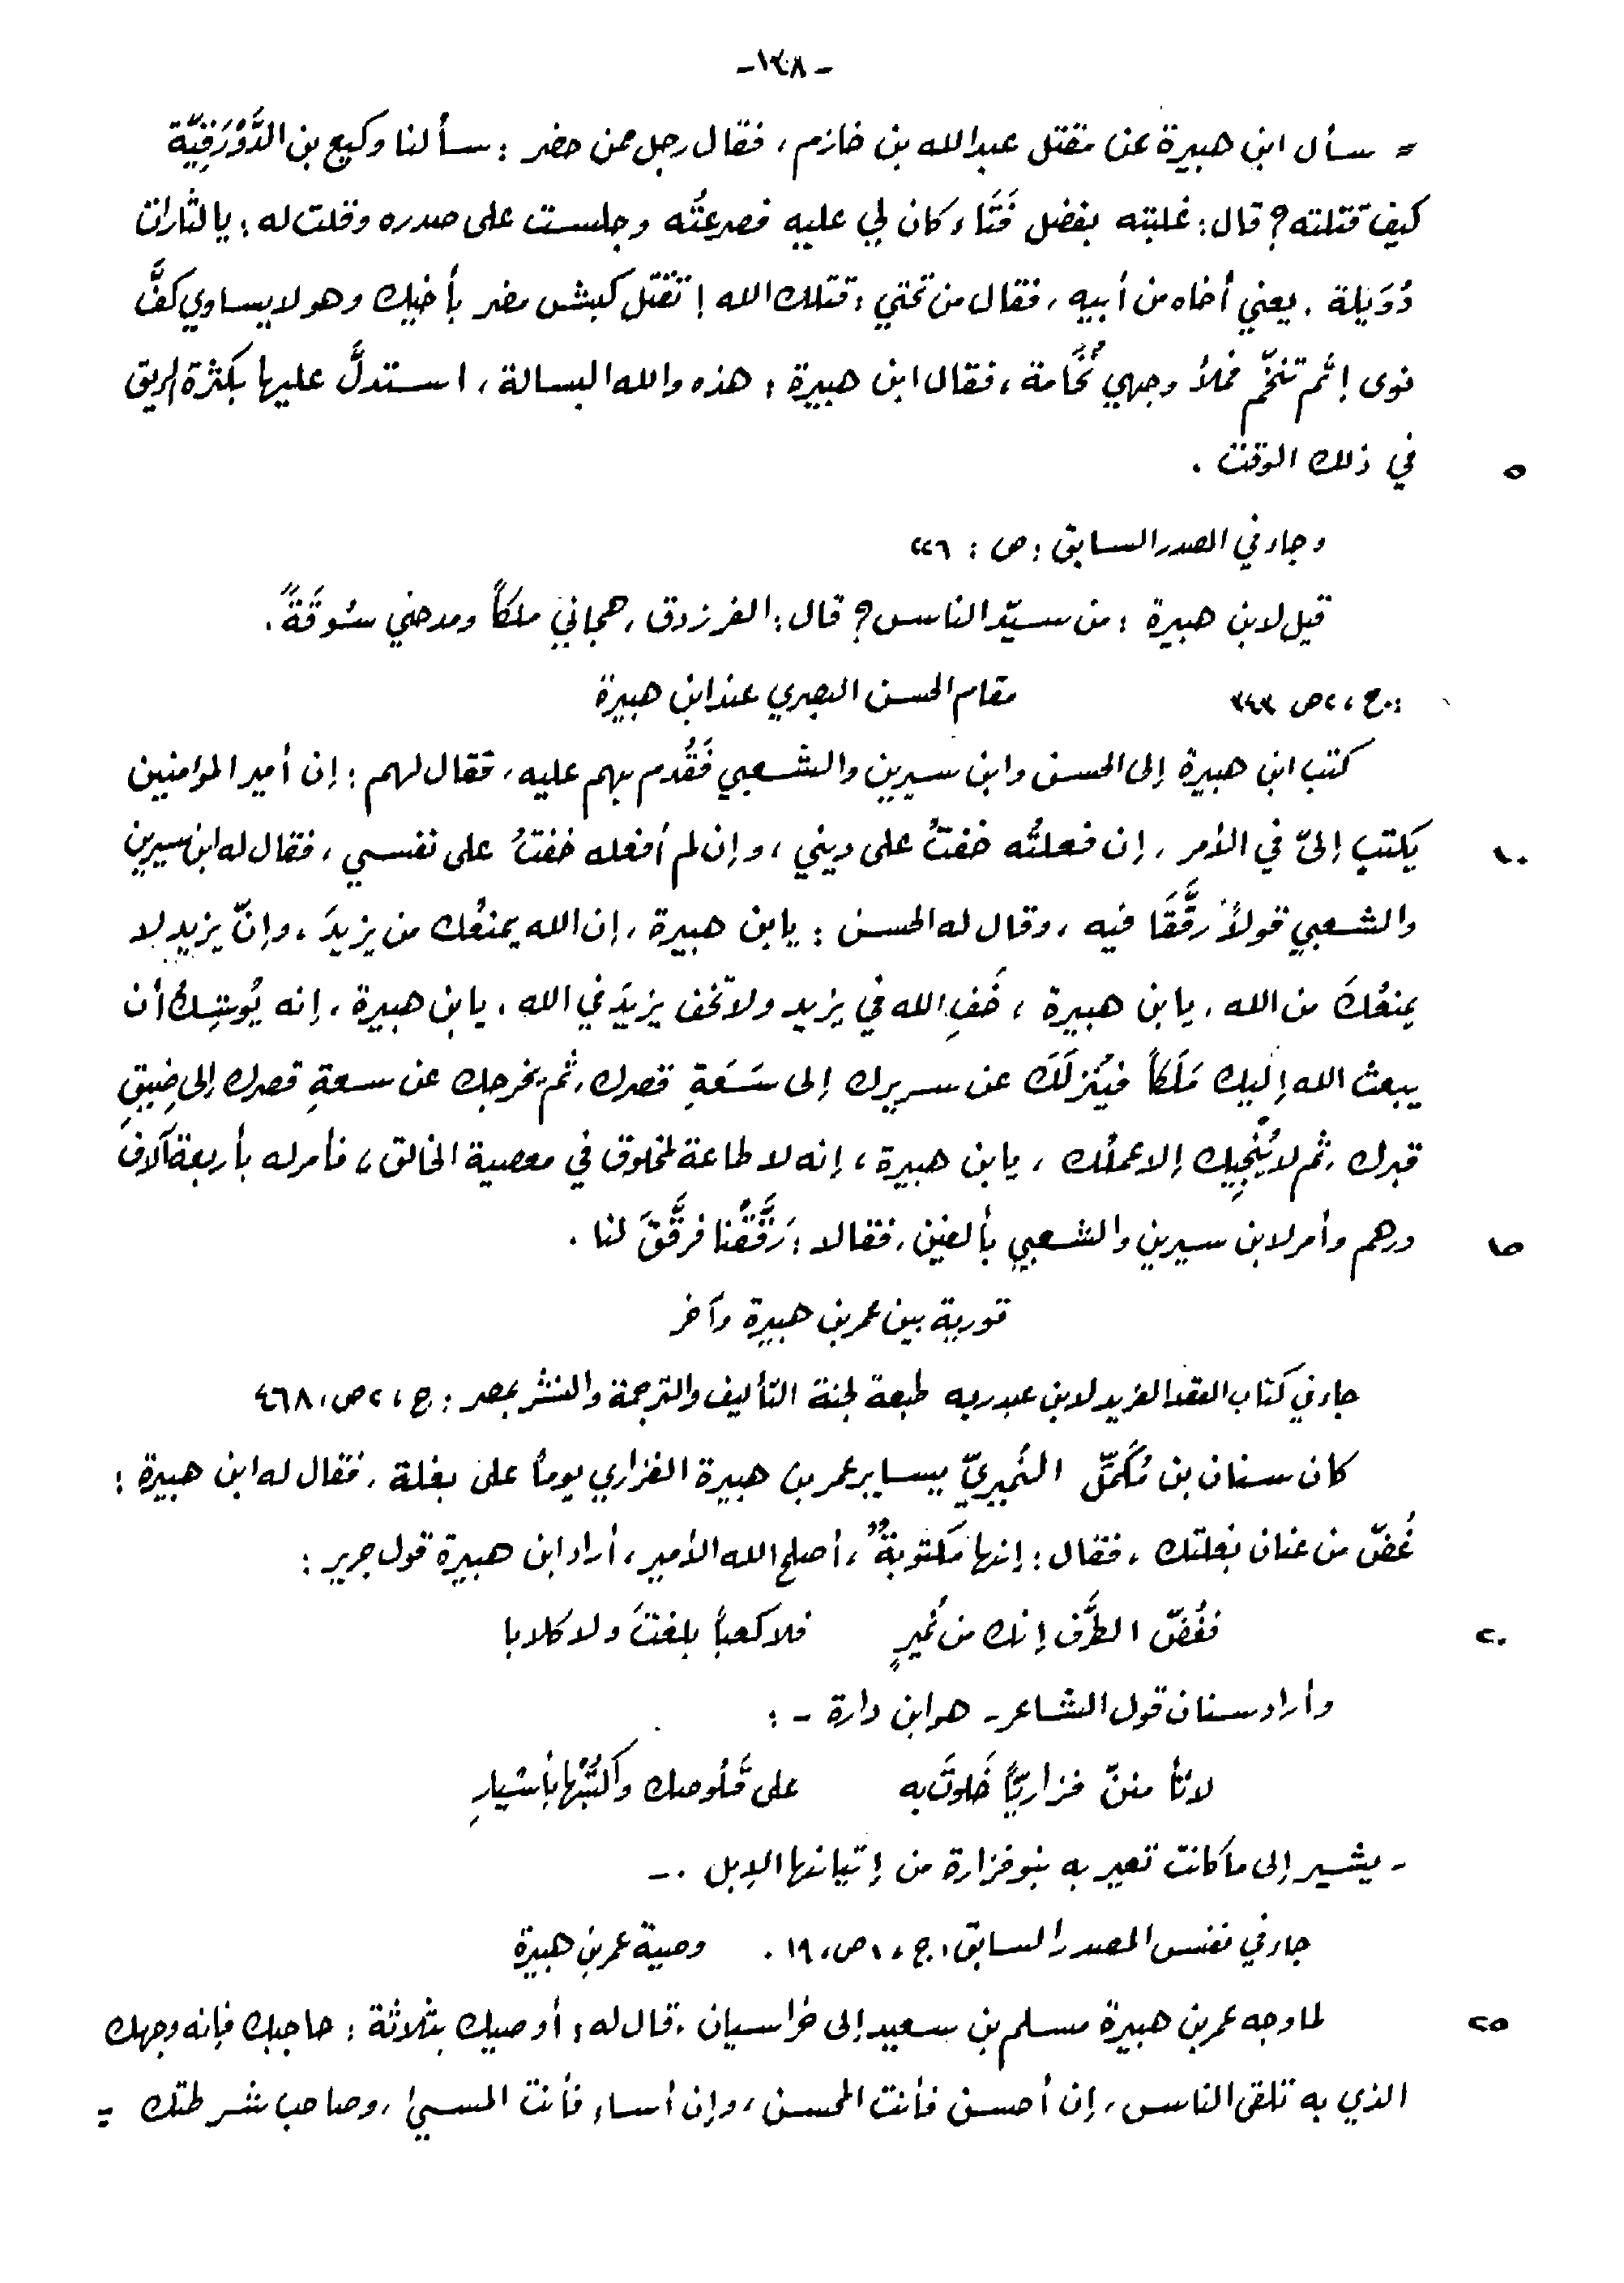 -١٣٨-
= سأل ابن هبيرة عن مقتل عبدالله بن خازم، فقال رجل ممن حضر: سألنا وكيع بن الدَّوْرَقِيّة
كيف قتلته؟ قال: غلبته بفضل فَتَاء كان لي عليه فصرعتُه وجلست على صدره وقلت له: يا لثارات
دُوَيلة. يعني أخاه من أبيه، فقال من تحتي: قتلك الله! تقتل كبش مضر بأخيك وهو لا يساوي كفَّ
نوى! ثم تنخّم فملأ وجهي نُخَامة، فقال ابن هبيرة: هذه والله البسالة، استدلَّ عليها بكثرة الريق
في ذلك الوقت. ٥
وجاء في المصدر السابق: ص: ٢٢٦
قيل لابن هبيرة: من سيّد الناس؟ قال: الفرزدق، هجاني ملكاً ومدحني سُوقَةً.
:. ج، ٢ ص ٣٤٣ مقام الحسن البصري عند ابن هبيرة
كتب ابن هبيرة إلى الحسن وابن سيرين والشعبي فَقُدم بهم عليه، فقال لهم: إن أمير المؤمنين
يكتب إليّ في الأمر، إن فعلتُه خفتُ على ديني، وإن لم أفعله خفتُ على نفسي، فقال له ابن سيرين ١٠
والشعبي قولاً رقَّقَا فيه، وقال له الحسن: يابن هبيرة، إن الله يمنعُك من يزيدَ، وإنّ يزيد لا
يمنعُكَ من الله، يا بن هبيرة، خَفِ الله في يزيد ولا تخف يزيدَ في الله، يا بن هبيرة، إنه يُوشِكُ أن
يبعث الله إليك مَلَكاً فيُنزلَكَ عن سريرك إلى سَعَةِ قصرك، ثم يخرجك عن سعةِ قصرك إلى ضِيقِ
قبرك، ثم لا يُنْجِيك إلا عملُك، يا بن هبيرة، إنه لا طاعة لمخلوق في معصية الخالق، فأمر له بأربعة آلاف
درهم وأمر لابن سيرين والشعبي بألفين، فقالا: رَقَّقْنا فرقَّقَ لنا. ١٥
تورية بين عمر بن هبيرة وآخر
جاء في كتاب العقد الفريد لابن عبدربه طبعة لجنة التأليف والترجمة والنشر بمصر: ج، ٢ ص، ٤٦٨
كان سنان بن مُكَمِّل النُميريّ يساير عمر بن هبيرة الفزاري يوماً على بغلة، فقال له ابن هبيرة:
غُضّ من عنان بغلتك، فقال: إنها مَكتوبةٌ، أصلح الله الأمير، أراد ابن هبيرة قول جرير:
فغُضّ الطَّرف إنك من نُميرٍ فلا كعباً بلغتَ ولا كلابا ٢٠
وأراد سنان قول الشاعر - هو ابن دارة -:
لا تأمننّ فزاريّاً خَلوتَ به على قَلُوصك واكتُبْها بأسْيارِ
- يشير إلى ما كانت تعير به بنو فزارة من إتيانها الإبل. -
جاء في نفس المصدر السابق، ج، ١ ص، ١٩. وصية عمر بن هبيرة
لما وجه عمر بن هبيرة مسلم بن سعيد إلى خراسان، قال له: أوصيك بثلاثة: حاجبك فإنه وجهك ٢٥
الذي به تلقى الناس، إن أحسن فأنت المحسن، وإن أساء فأنت المسيئ، وصاحب شرطتك =